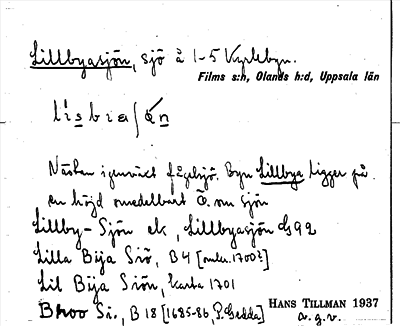 Lillbyasjön, sjö å 1-5 Kyrlebyn.
Films s:n, Olands h:d, Uppsala län
Nästan igenväxt fågelsjö. Byn Lillbya ligger på
en höjd omedelbart Ö. om sjön
Lillby-Sjön ek, Lillbyasjön G 92
Lilla Bija Siö, B 4 [omkr. 1700?]
Lil Bija Siön, karta 1701
Broo Si., B 18 [1685-86, P. Gedda]
HANS TILLMAN 1937
a. g. v.